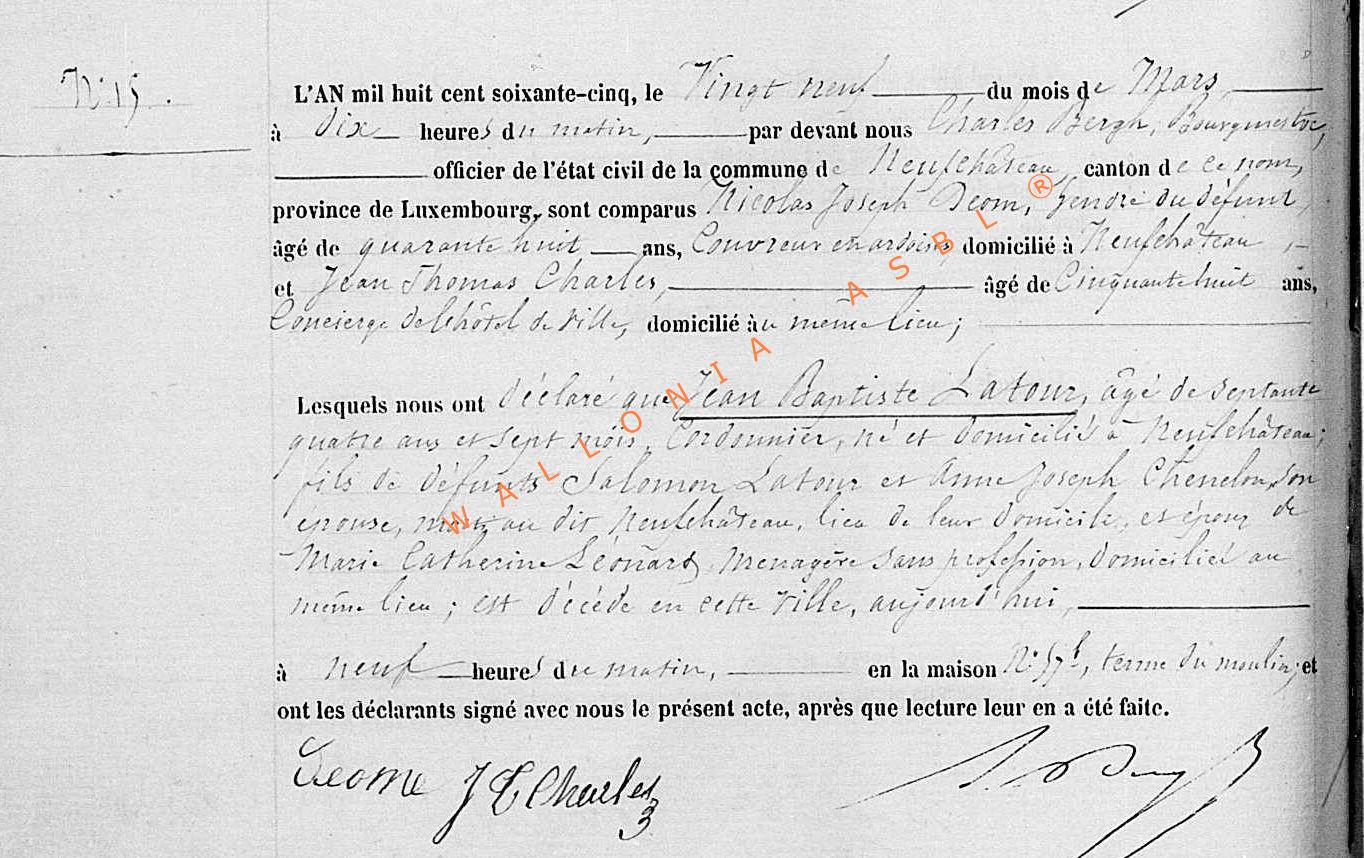 N° 15.
L'AN mil huit cent soixante-cinq, le Vingt neuf du mois de Mars,
à Dix heures du matin, par devant nous Charles Bergh, Bourgmestre,
officier de l'état civil de la commune de Neufchâteau, canton de ce nom,
province de Luxembourg, sont comparus Nicolas Joseph Deom, gendre du défunt,
âgé de quarante huit ans, Couvreur en ardoises, domicilié à Neufchâteau,
et Jean Thomas Charles, âgé de Cinquante huit ans,
Concierge de l'hôtel de ville, domicilié au même lieu;
Lesquels nous ont déclaré que Jean Baptiste Latour, âgé de septante
quatre ans et sept mois, Cordonnier, né et domicilié à Neufchâteau;
fils de défunts Salomon Latour et Anne Joseph Chenelon, son
épouse, au dit Neufchâteau, lieu de leur domicile, et époux de
Marie Catherine Léonard, Menagère sans profession, domiciliée au
même lieu; est décédé en cette ville, aujourd'hui,
à neuf heures du matin, en la maison N° 57b, terme du moulin; et
ont les déclarants signé avec nous le présent acte, après que lecture leur en a été faite.
Deome J T Charles
WALLONIA ASBL ®